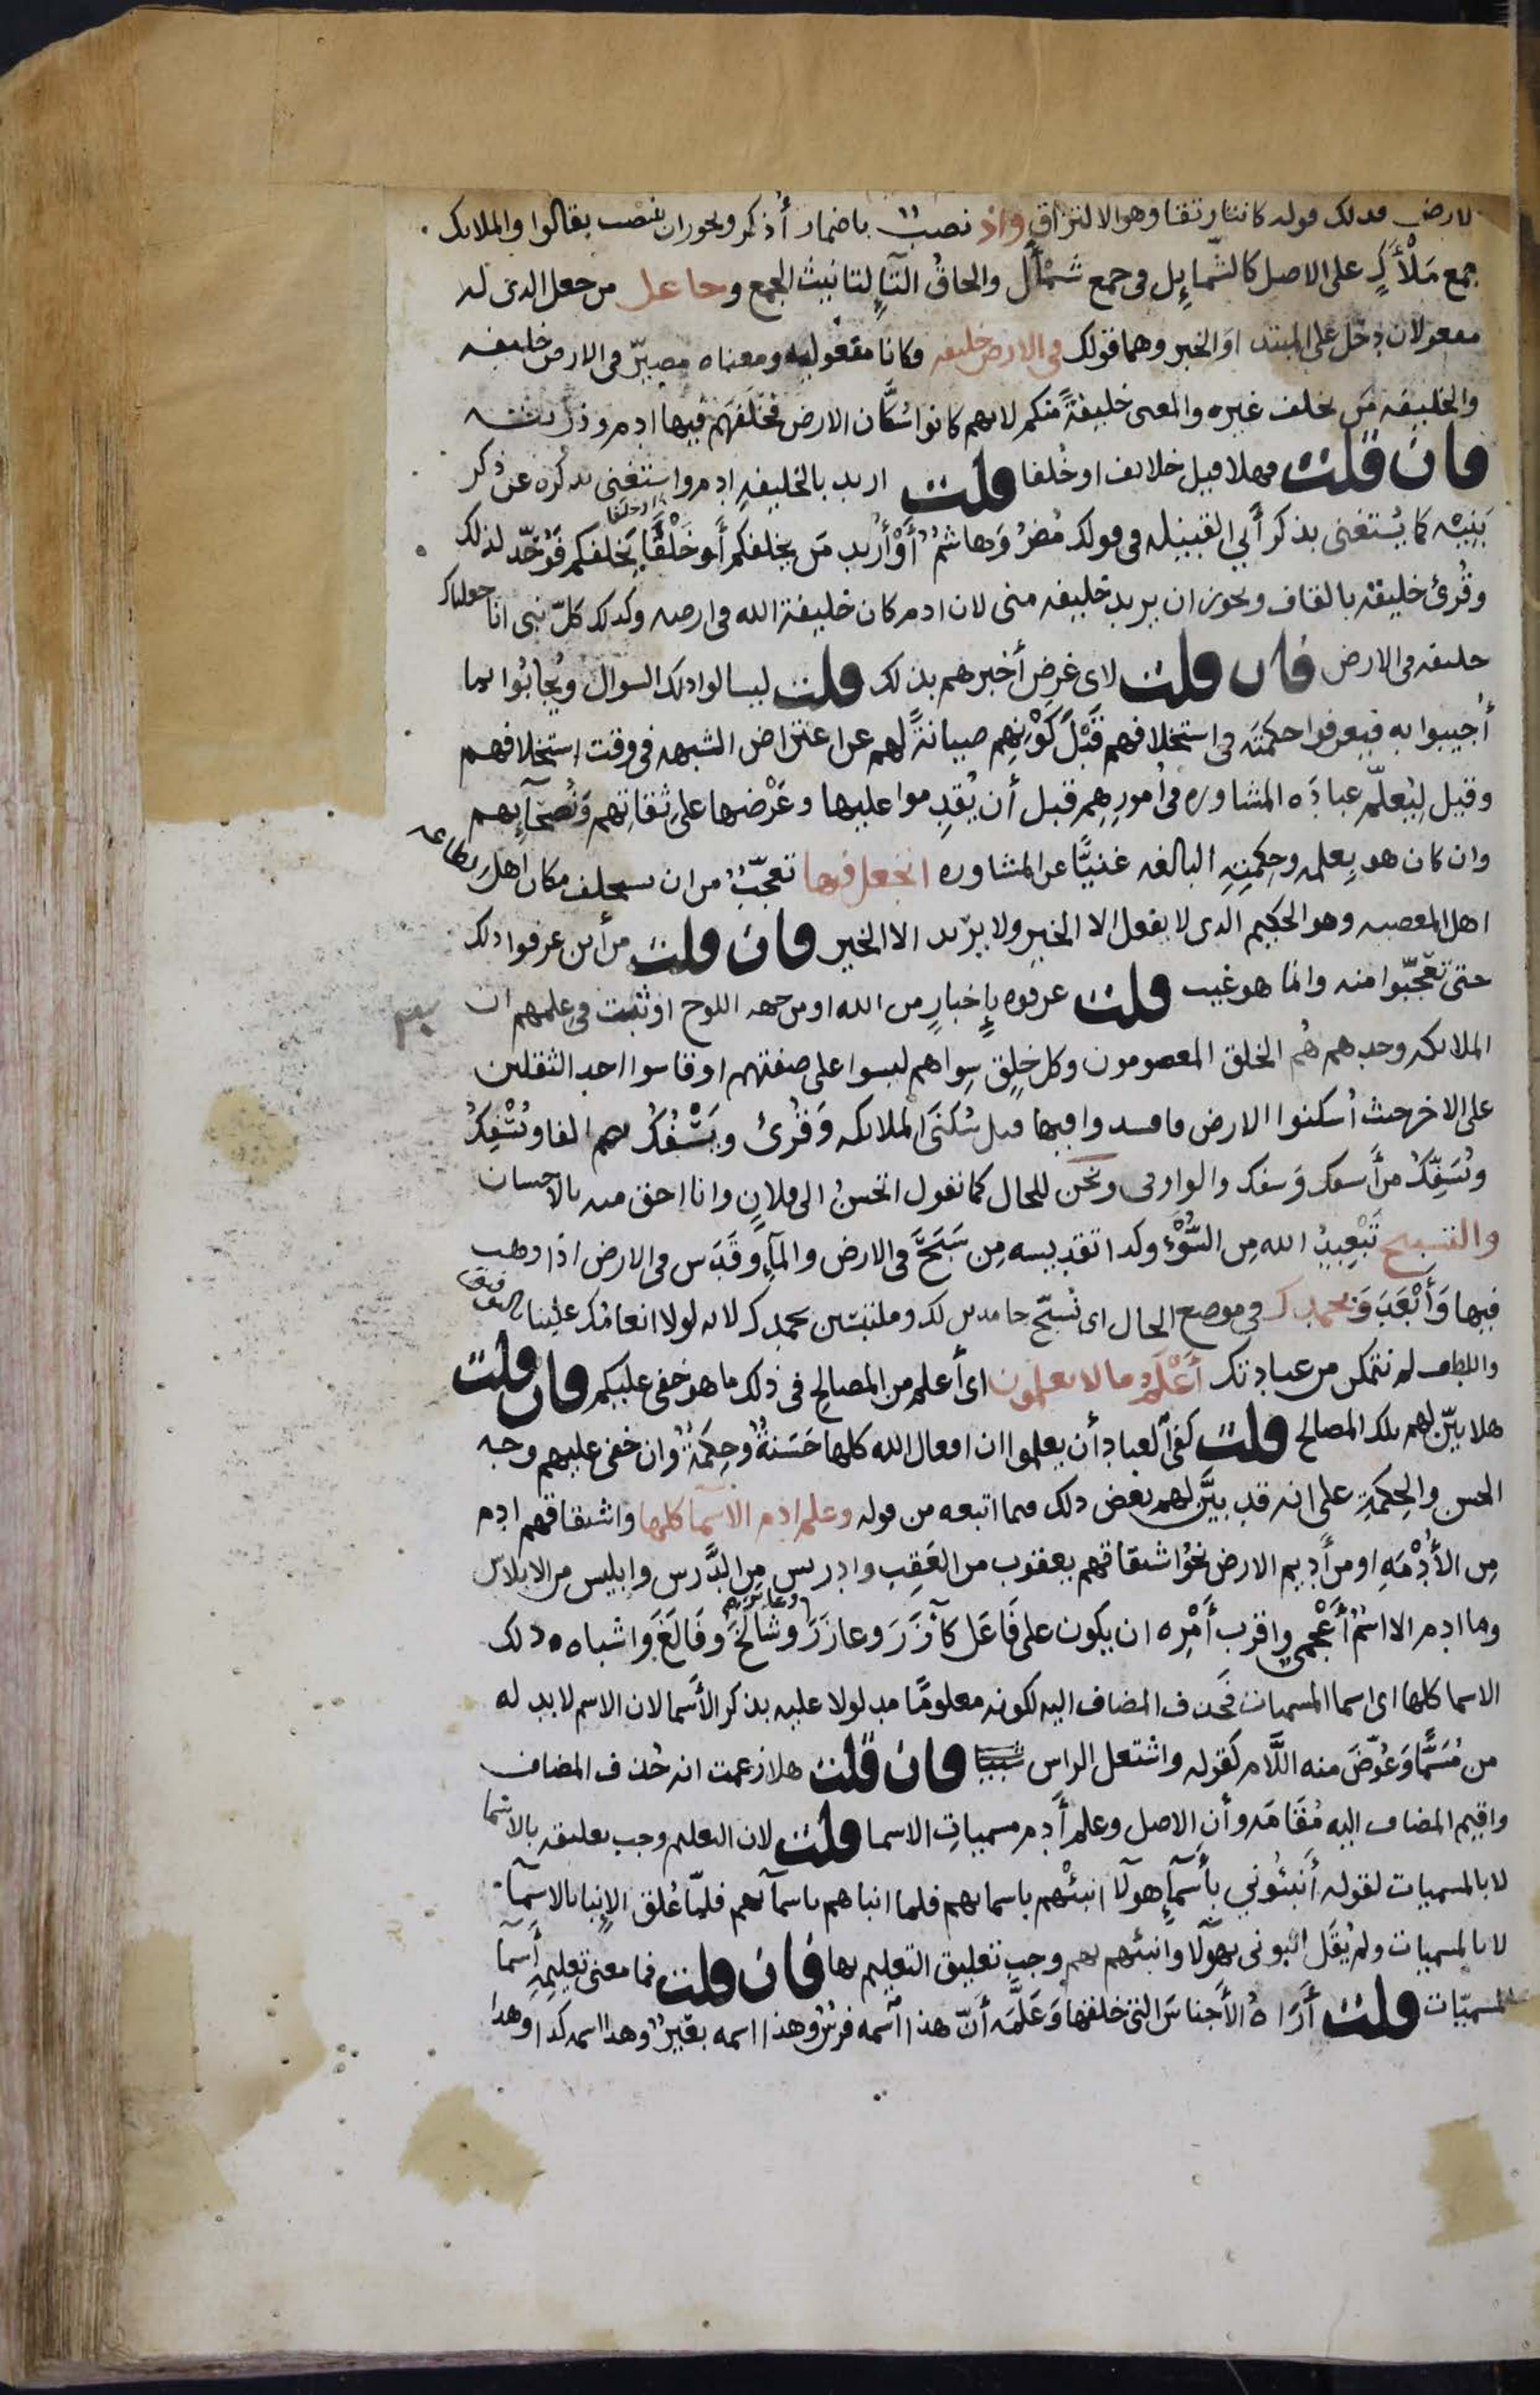 لارض فذلك قوله كانتا رتقا وهو الالتزاق واذ نصب باضمار أذكر ويجوز ان ينصب بقالوا والملايك
جمع مَلْأَكٍ على الاصل كالشمايل في جمع شَمْأَل والحاق التآءِ لتانيث الجمع وجاعل من جعل الذي له
مفعولان دخل على المبتدا والخبر وهما قولك في الارض خليفه وكانا مفعوليه ومعناه مصيّر في الارض خليفه
والخليفه من يخلف غيره والمعنى خليفةً منكم لانهم كانوا سُكَّان الارض فخَلَفَهم فيها ادم وذريته
فان قلت فهلا قيل خلايف او خُلفا قلت اريد بالخليفه ادم واستغنى بذكره عن ذكر
بَنِيْه كما يُستغنى بذكر أَبي القبيله في قولك مُضرُ وَهاشمٌ أَوْ أُريد من يخلفكم أَو خَلْقًا يَخلفكم فَوُحّد لذلك
وقُرئ خليقة بالقاف ويجوز ان يريد خليفه مني لان ادم كان خليفة الله في ارضه وكذلك كلّ نبي انا جعلناك
خليفه في الارض فان قلت لاي غرض أخبرهم بذلك قلت ليسالوا ذلك السوال ويُجابُوا بما
أُجيبوا به فيعرفوا حكمتَه في استخلافهم قَبْلَ كَوْنِهم صيانةً لهم عن اعتراض الشبهه في وقت استخلافهم
وقيل ليُعلّم عبادَه المشاوره في أمورِهِم قبل أن يُقدِموا عليها وعَرْضها على ثقاتِهم وَنُصَحآئِهم
وان كان هو بِعلمه وحِكمتِهِ البالغه غنيًّا عن المشاوره اتجعل فيها تعجّبٌ من ان يستخلف مكان اهل الطاعه
اهل المعصيه وهو الحكيم الذي لا يفعل الا الخير ولا يريد الا الخير فان قلت من أين عرفوا ذلك
حتى تعجّبوا منه وانما هو غيب قلت عرفوه بإِخبارٍ من الله او من جهه اللوح او ثبت في علمهم ان
الملايكه وحدهم هُم الخلق المعصومون وكل خلقٍ سِواهم ليسوا على صفتهم او قاسوا احد الثقلين
على الاخر حيث أُسكنوا الارض فافسدوا فيها قبل سُكنَى الملايكه وَقُرئ ويَسْفُكُ بضم الفا وَيُسْفِكُ
ويُسَفِّكُ من أَسفك وَسفك والواو في ونحن للحال كما تقول اتحسنُ الى فلانٍ وانا احق منه بالاحسان
والتسبيح تَبْعِيدُ الله مِن السُّوْءِ وكذا تقديسه مِن سَبَحَ في الارض والمآءِ وقَدَس في الارض اذا ذهب
فيها وَأَبْعَدَ وَبحمدك في موضع الحال اى نُسبّح حامدين لك وملتبسين بحمدك لانه لولا انعامُك علينا بالتوفيق
واللطف لم نتمكن من عبادتك أَعْلَمُ ما لا تعلمون اى أعلم من المصالح في ذلك ما هو خفي عليكم فان قلت
هلا بيّن لهم تلك المصالح قلت كفى العباد أن يعلموا ان افعال الله كلها حَسَنةٌ وحِكمَةٌ وان خفي عليهم وجه
الحسن والحِكمَةِ على انه قد بيَّن لهم بعض ذلك فيما اتبعه من قوله وعلم ادم الاسما كلها واشتقاقهم ادم
مِن الأُدْمَهِ او من أَديم الارض نَحْوُ اشتقاقهم يعقوب من العَقِبِ وادريس مِن الدَّرس وابليس من الابلاس
وما ادم الا اسمٌ أَعْجَمي واقرب أَمْرِه ان يكون على فَاعَل كآزَرَ وعازَرَ وشالَخَ وفَالَغَ واشباه ذلك
الاسما كلها اى اسما المسميات فحُذف المضاف اليه لكونه معلومًا مدلولا عليه بذكر الأَسما لان الاسم لا بد له
من مُسَمًّا وَعُوّضَ منه اللَّام كقوله واشتعل الراس شيبا فان قلت هلا زعمت انه حُذف المضاف
واقيم المضاف اليه مُقَامَه وأن الاصل وعلم أَدم مسمياتِ الاسما قلت لان التعليم وجب تعليقه بالاسما
لا بالمسميات لقوله أَنبئُوني بأَسْمآءِ هولآ انبئْهم باسمايهم فلما انباهم باسمآيهم فلمّا عُلق الإِنبا بالاسمآ
لا بالمسميات ولم يُقَل انبوني بهولآ وأنبئهم بهم وجب تعليق التعليم بها فان قلت فما معنى تعليمِهِ أَسمآ
المسميّات قلت أَرَاهُ الأَجناسَ التي خلقها وَعَلَّمَه أَنّ هذا اسمه فرسٌ وهذا اسمه بعيرٌ وهذا اسمه كذا وهذا